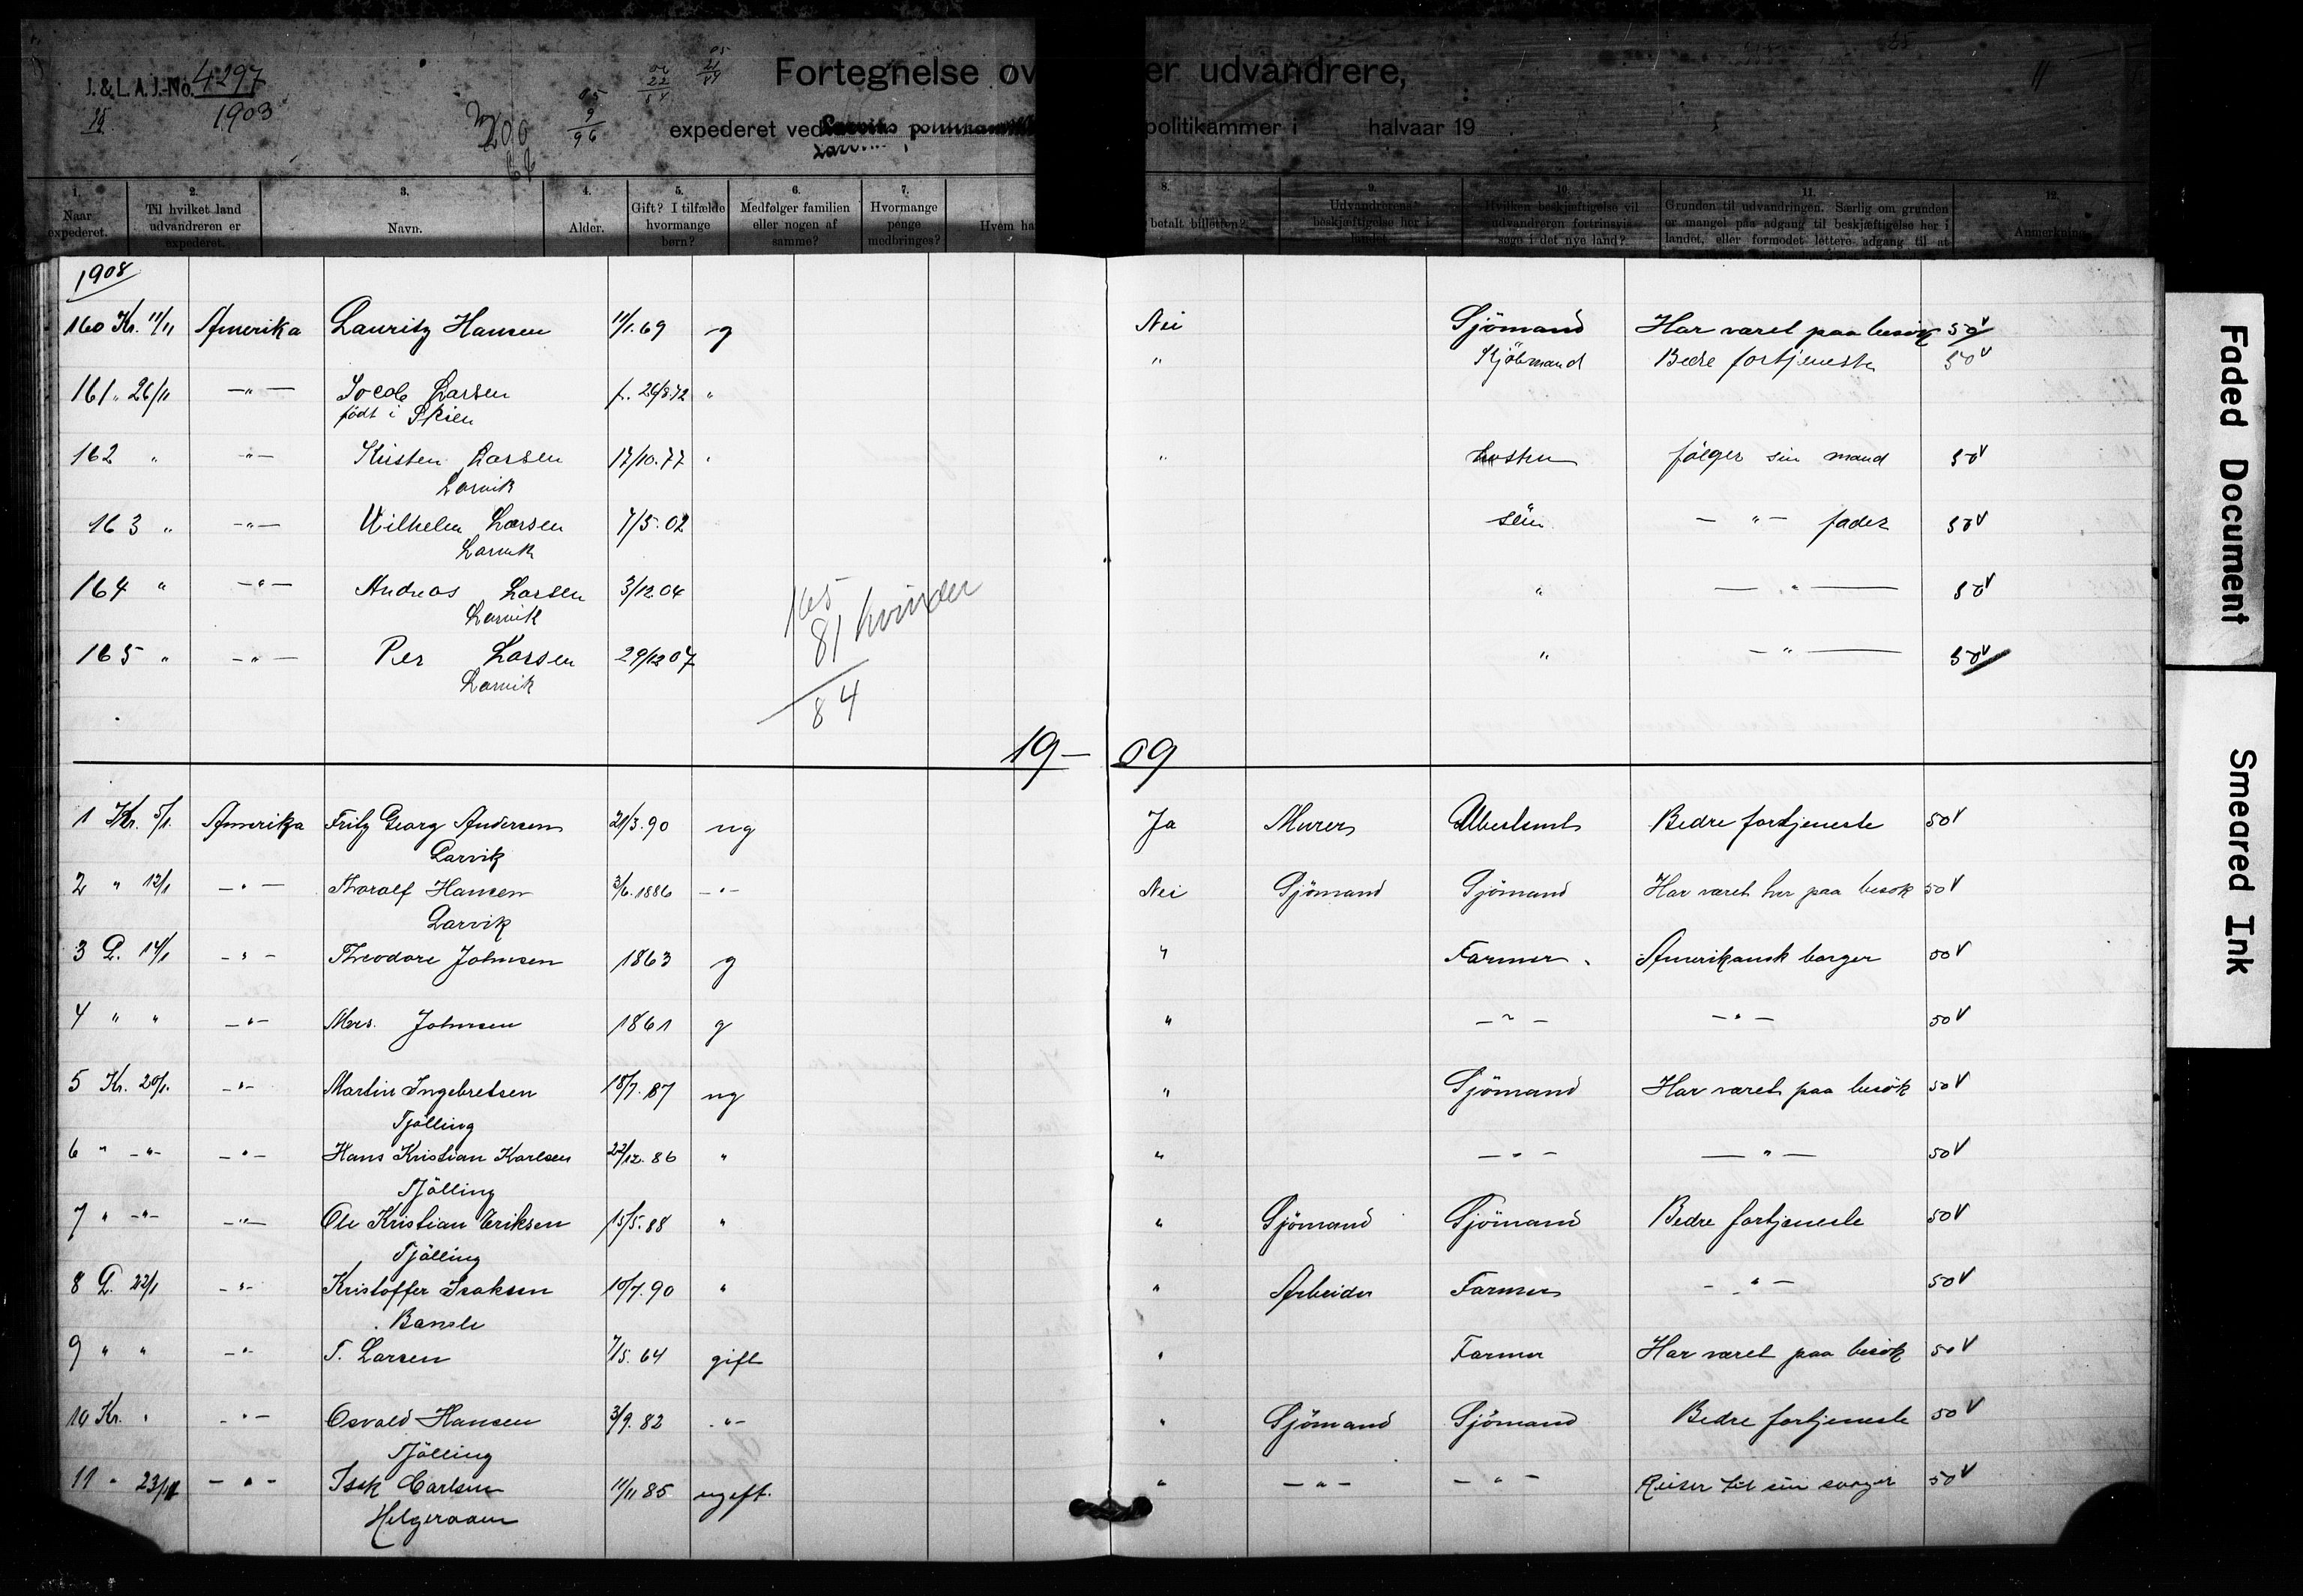 J. & L. A. J.-No. 4297
1903
200
05
9
96
Fortegnelse over udvandrere,
expederet ved Larviks politikammer i halvaar 19
Larvik
1.
Naar expederet.
2.
Til hvilket land udvandreren er expederet.
3.
Navn.
4.
Alder.
5.
Gift? I tilfælde hvormange børn?
6.
Medfølger familien eller nogen af samme?
7.
Hvormange penge medbringes?
8.
Hvem ha betalt billetten?
9.
Udvandrerens beskjæftigelse her i landet.
10.
Hvilken beskjæftigelse vil udvandreren fortrinsvis søge i det nye land?
11.
Grunden til udvandringen. Særlig om grunden er mangel paa adgang til beskjæftigelse her i landet, eller formodet lettere adgang til at
12.
Anmerkning.
1908
160 Kr. 11/11 Amerika Lauritz Hansen 11/1.69 g Nei Sjömand Har været paa besök 50 v
" Kjöbmand Bedre fortjeneste 50 v
161 " 26/11 —"— Jocob Larsen f. 26/8.72 "
födt i Skien
162 " —"— Kristen Larsen 17/10.77 " " hustru fölger sin mand 50 v
Larvik
163 " —"— Wilhelm Larsen 7/5.02 sön —"— fader 50 v
Larvik
164 " —"— Andreas Larsen 3/12.04 " —"— 50 v
Larvik
165 " —"— Per Larsen 29/12 07 " —"— 50 v
Larvik
165
81 kvinder
84
19 — 09
1 Kr. 5/1. Amerika Fritz Georg Andersen 21/3.90 ug Ja Murer Ubestemt Bedre fortjeneste 50 v
Larvik
2 " 12/1 —"— Thoralf Hansen 3/6.1886 —"— Nei Sjömand Sjömand Har været her paa besök 50 v
Larvik
3 L. 14/1 —"— Theodore Johnsen 1863 g " Farmer Amerikansk borger 50 v
4 " " —"— Mrs. Johnsen 1861 g " —"— —"— 50 v
5 Kr. 20/1. —"— Martin Ingebretsen 18/7.87 ug " Sjömand Har været paa besök 50 v
Tjölling
6 " —"— —"— Hans Kristian Karlsen 22/12.86 " " —"— —"— 50 v
Tjölling
7 " —"— —"— Ole Kristian Eriksen 15/5.88 " " Sjömand Sjömand Bedre fortjeneste 50 v
Tjölling
8 L. 22/1 —"— Kristoffer Isaksen 10/7.90 " " Arbeider Farmer —"— 50 v
Bamle
9 " " —"— T. Larsen 7/5.64 gift " Farmer Har været paa besök 50 v
10 Kr. " —"— Osvald Hansen 3/9.82 —"— " Sjömand Sjömand Bedre fortjeneste 50 v
Tjölling
11 " 23/1 —"— Isak Carlsen 11/11 85 ugift. " —"— —"— Reiser til sin svoger 50 v
Helgeroaen
Faded Document
Smeared Ink